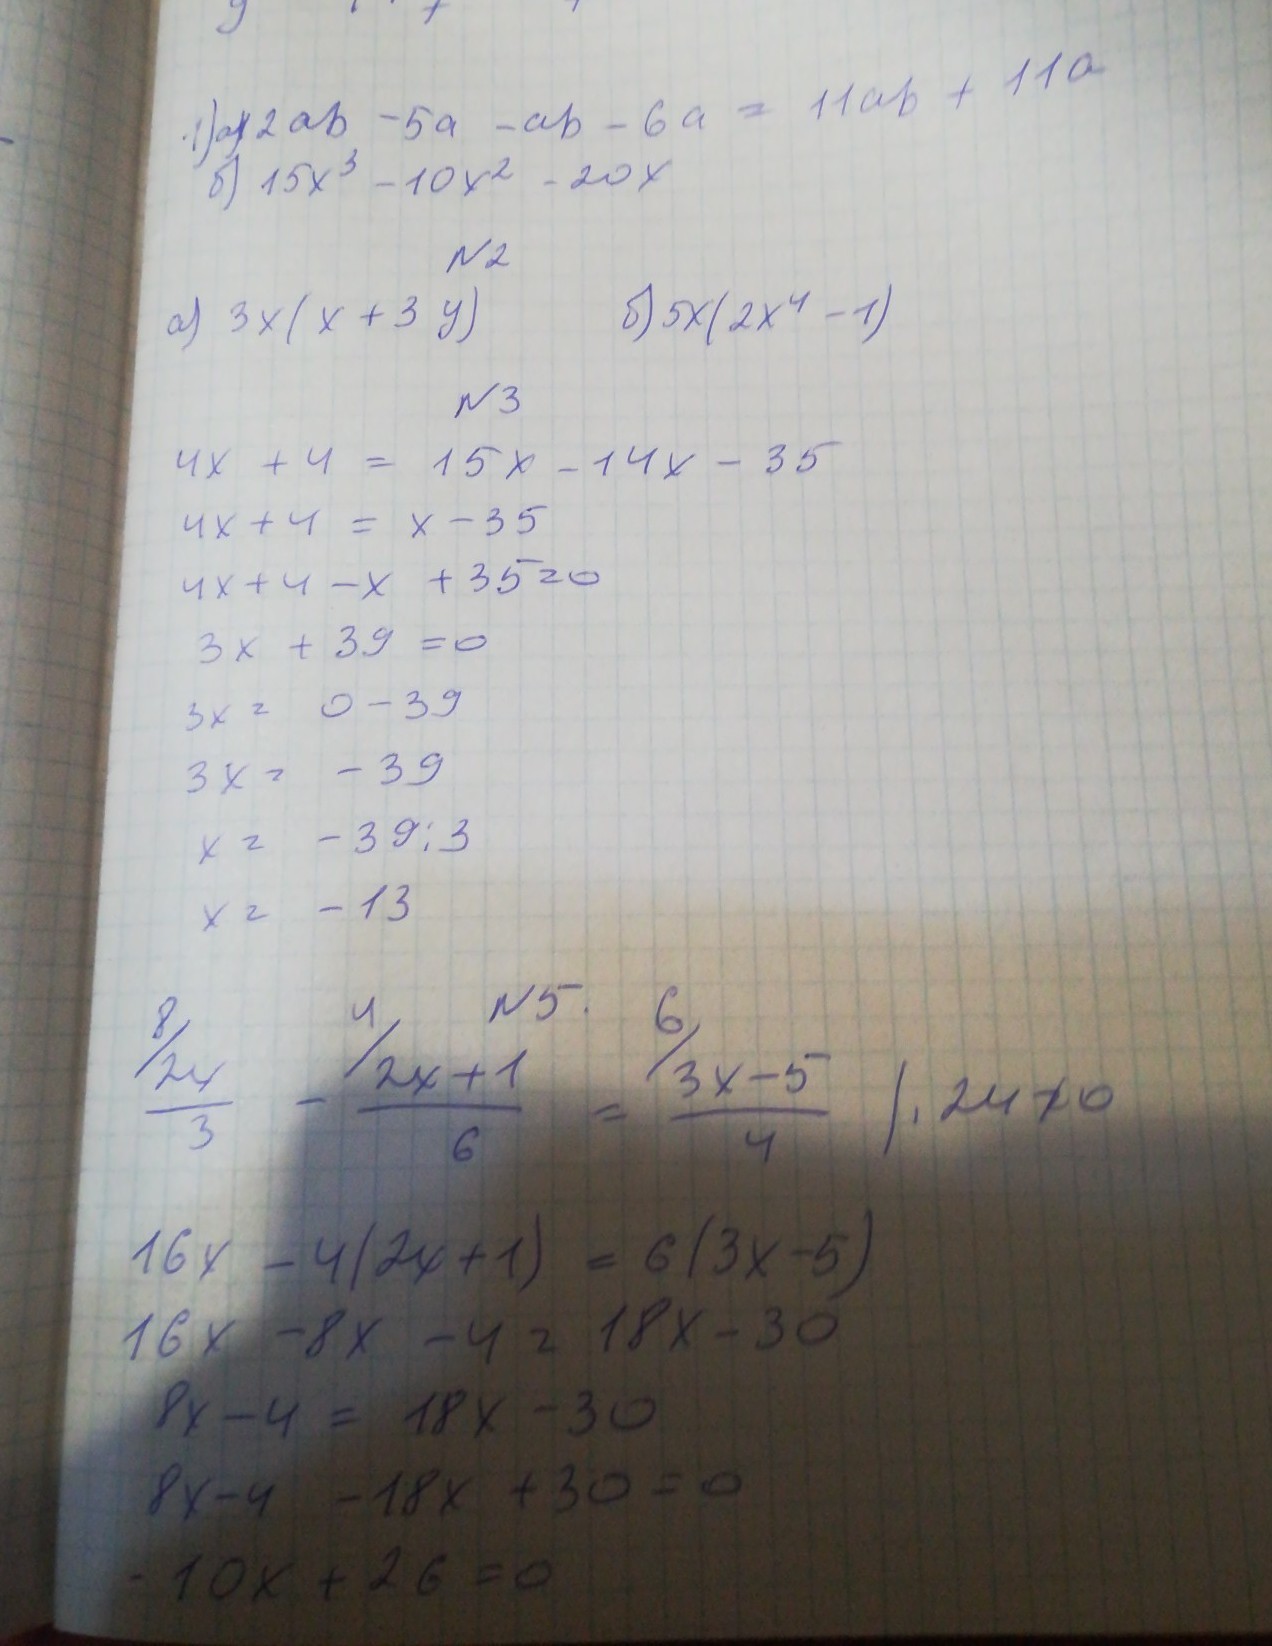 1) а) 12ab - 5a - ab - 6a = 11ab + 11a
б) 15x³ - 10x² - 20x
N2
а) 3x(x + 3y) б) 5x(2x⁴ - 1)
N3
4x + 4 = 15x - 14x - 35
4x + 4 = x - 35
4x + 4 - x + 35 = 0
3x + 39 = 0
3x = 0 - 39
3x = -39
x = -39:3
x = -13
N5.
8/ 2x/3 - 4/ (2x+1)/6 = 6/ (3x-5)/4 |. 24≠0
16x - 4(2x+1) = 6(3x-5)
16x - 8x - 4 = 18x - 30
8x - 4 = 18x - 30
8x - 4 - 18x + 30 = 0
-10x + 26 = 0